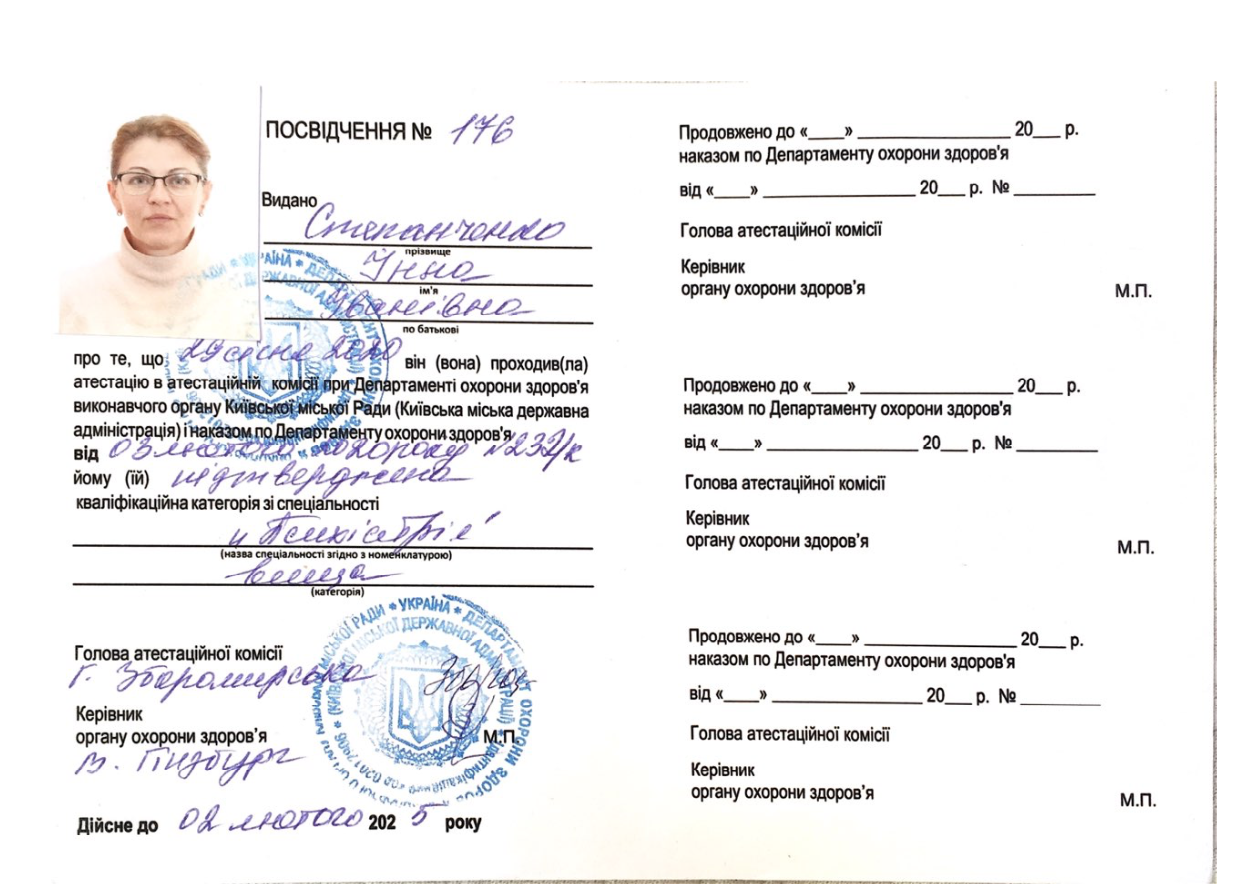 ПОСВІДЧЕННЯ № 176
Видано
Степанченко
прізвище
Інна
ім'я
Іванівна
по батькові
про те, що 29 січня 2020 він (вона) проходив(ла)
атестацію в атестаційній комісії при Департаменті охорони здоров'я
виконавчого органу Київської міської Ради (Київська міська державна
адміністрація) і наказом по Департаменту охорони здоров'я
від 03 лютого 2020 року №232/к
йому (їй) підтверджена
кваліфікаційна категорія зі спеціальності
"Психіатрія"
(назва спеціальності згідно з номенклатурою)
вища
(категорія)
Голова атестаційної комісії
Г. Зборомирська
Керівник
органу охорони здоров'я
М.П.
В. Гінзбург
Дійсне до 02 лютого 2025 року
УКРАЇНА * ДЕПАРТАМЕНТ ОХОРОНИ ЗДОРОВ'Я
Продовжено до «____» ____________________ 20___ р.
наказом по Департаменту охорони здоров'я
від «____» ____________________ 20___ р. № __________
Голова атестаційної комісії
Керівник
органу охорони здоров'я М.П.
Продовжено до «____» ____________________ 20___ р.
наказом по Департаменту охорони здоров'я
від «____» ____________________ 20___ р. № __________
Голова атестаційної комісії
Керівник
органу охорони здоров'я М.П.
Продовжено до «____» ____________________ 20___ р.
наказом по Департаменту охорони здоров'я
від «____» ____________________ 20___ р. № __________
Голова атестаційної комісії
Керівник
органу охорони здоров'я М.П.